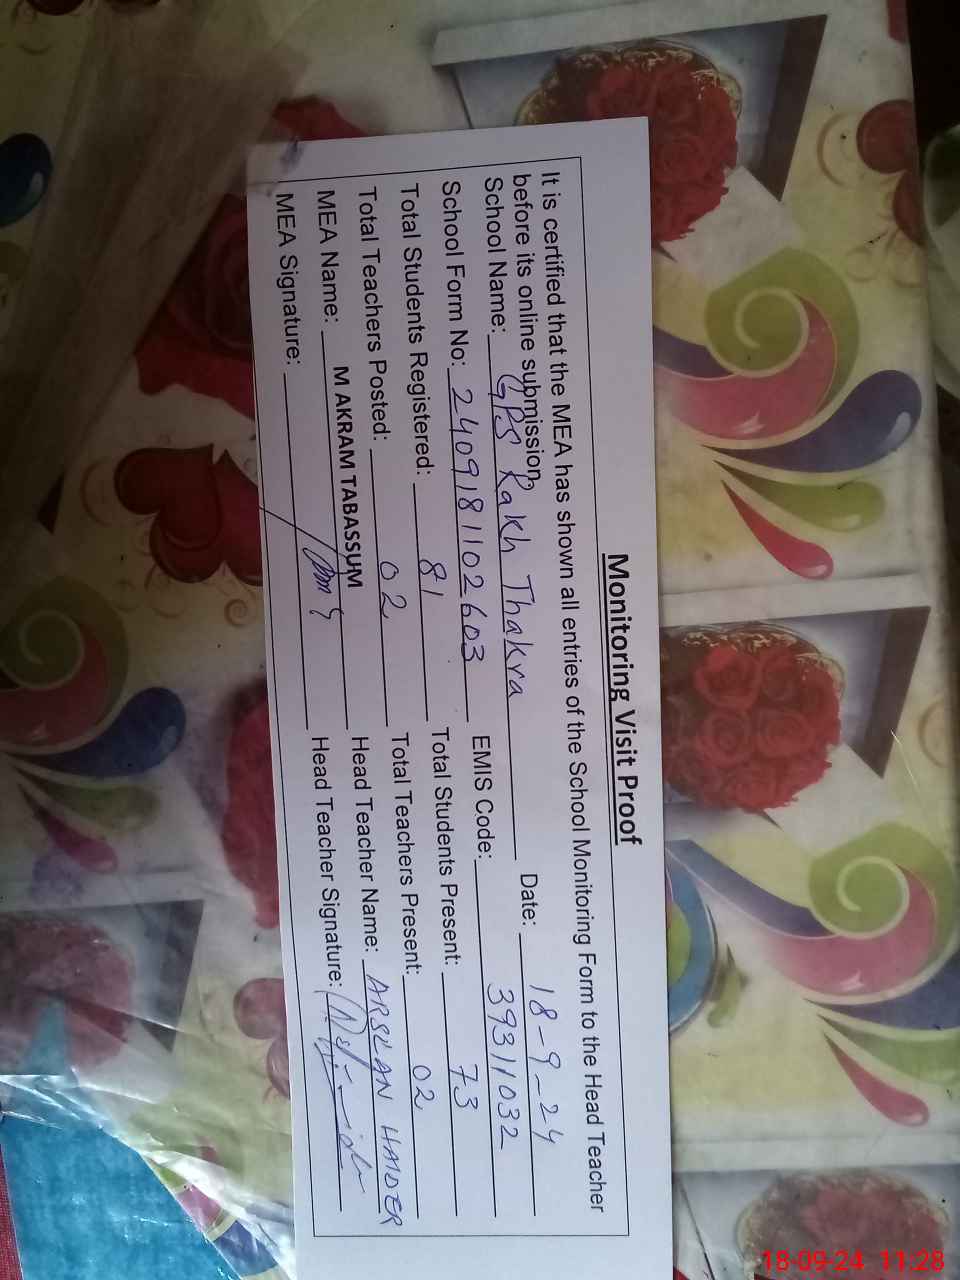 Monitoring Visit Proof
It is certified that the MEA has shown all entries of the School Monitoring Form to the Head Teacher
before its online submission.
School Name: GPS Rakh Thakra Date: 18-9-24
School Form No: 2409181102603 EMIS Code: 39311032
Total Students Registered: 81 Total Students Present: 73
Total Teachers Posted: 02 Total Teachers Present: 02
MEA Name: M AKRAM TABASSUM Head Teacher Name: ARSLAN HAIDER
MEA Signature: Head Teacher Signature:
18-09-24 11:28